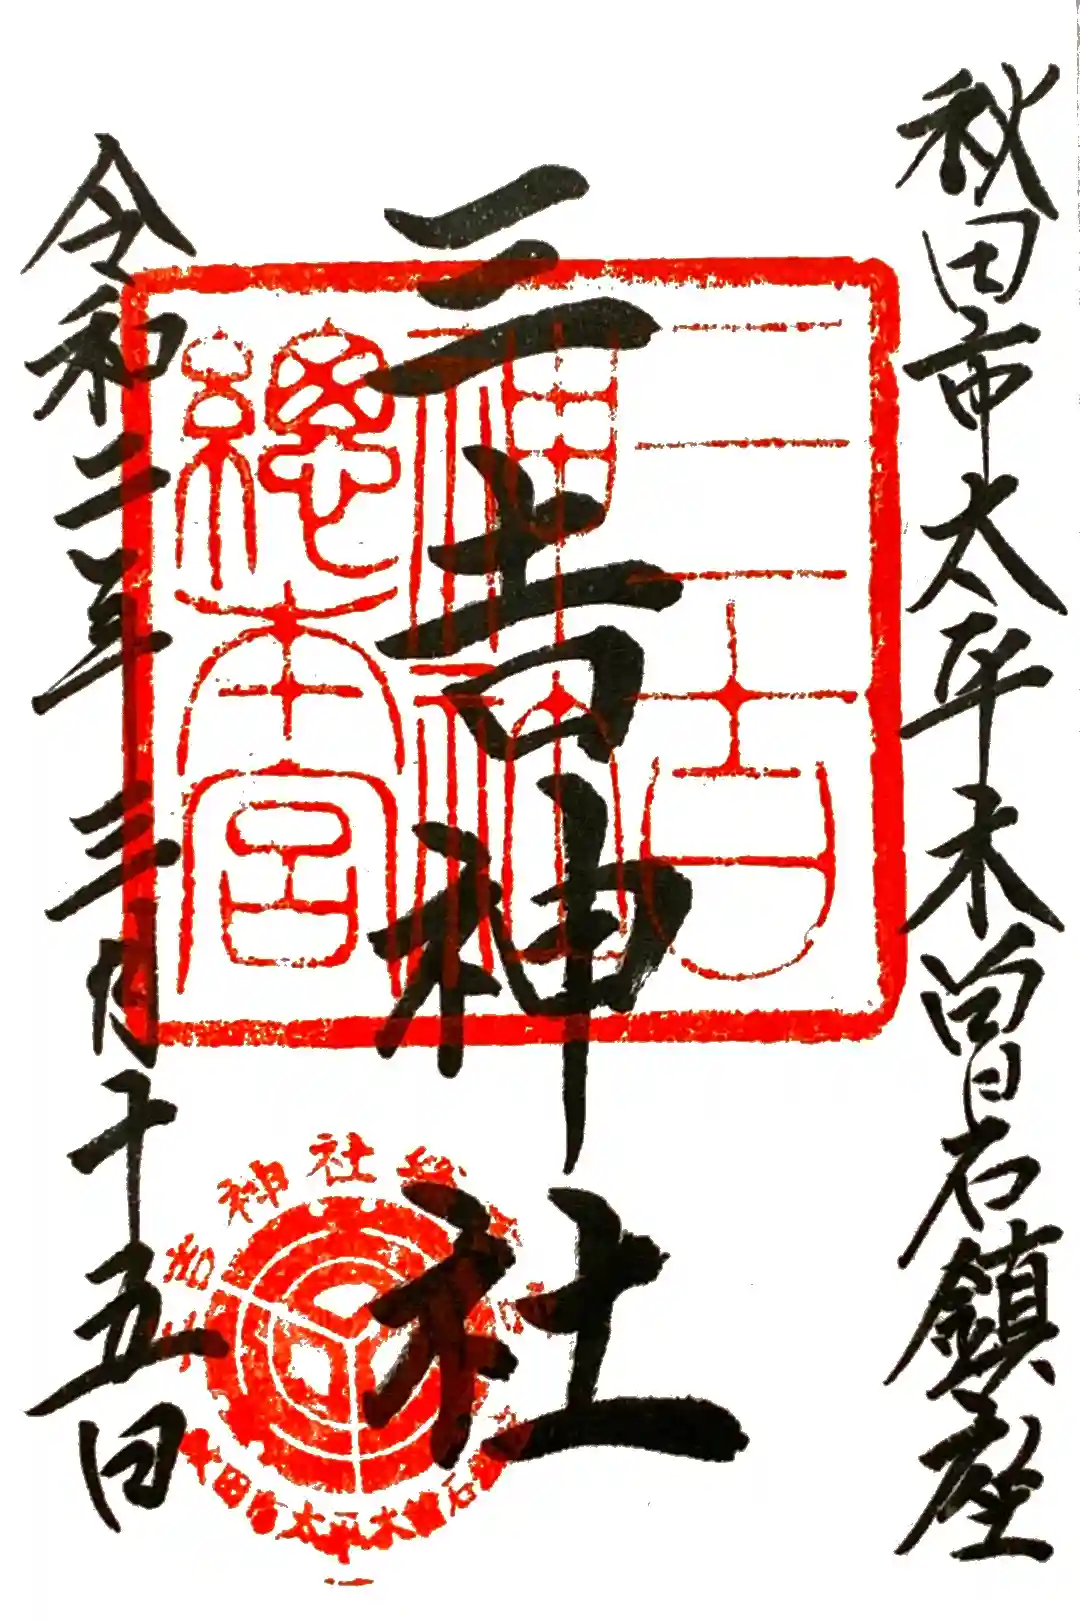 秋田市太平木曽石鎮座
三吉神社
令和二年三月十五日
三吉
神社
總本宮
三吉神社総本宮
秋田市太平木曽石